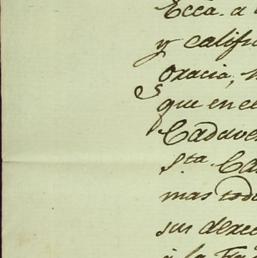 Ecca. a
y calific
oracia,
que en el
Cadaver
Sta. Ca
mas todo
sus derec
y la